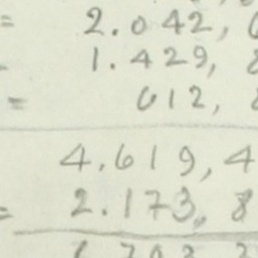 = 2.042,
1.429,
= 612,
4.619,4
= 2.173,8